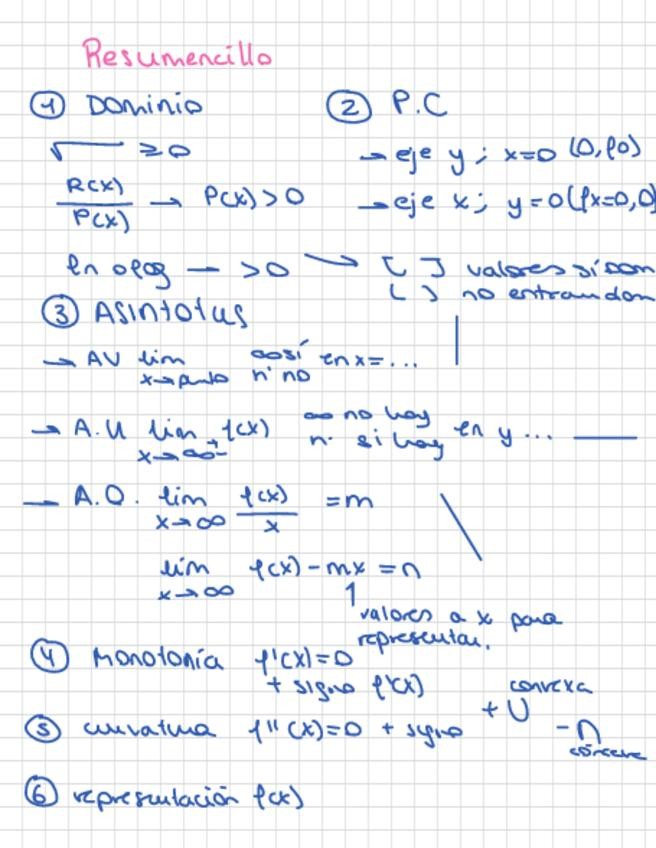 Resumencillo
① Dominio
√ ≥0
R(x)/P(x) → P(x) > 0
ln o log — >0 → [ ] valores sí dom
( ) no entran dom
② P.C
→ eje y ; x=0 (0, f0)
→ eje x ; y=0 (fx=0,0)
③ Asintotas
→ AV lim x→punto ∞ sí nº no en x=... |
→ A.H lim x→∞± f(x) ∞ no hay nº si hay en y ... —
→ A.O. lim x→∞ f(x)/x = m \
lim x→∞ f(x) - mx = n
↑ valores a x para
representar.
④ Monotonía f'(x)=0
+ signo f'(x)
⑤ curvatura f''(x)=0 + signo + ∪ convexa - ∩ cóncava
⑥ representación f(x)